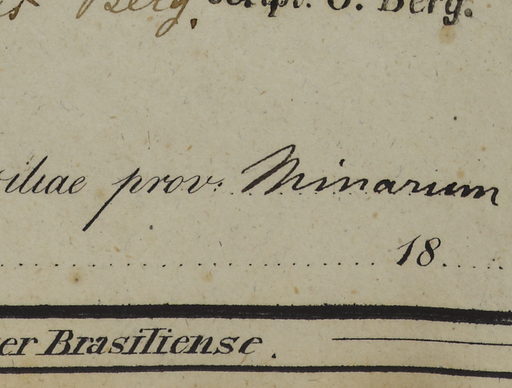 Berg. script. O. Berg.
iliae prov: Minarum
18
er Brasiliense.